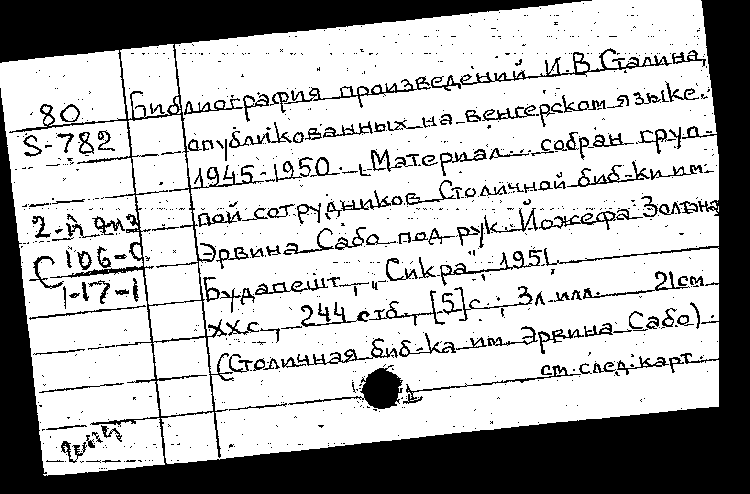 80
S-782
2-й экз
C 106-C
1-17-1
Библиография произведений И.В.Сталина,
опубликованных на венгерском языке.
1945-1950. Материал... собран груп-
пой сотрудников Столичной биб-ки им.
Эрвина Сабо под рук. Йожефа Золтана
Будапешт, „Сикра", 1951.
XXс., 244 стб., [5]с.; 3л. илл. 21см
(Столичная биб-ка им. Эрвина Сабо).
см. след. карт.
1